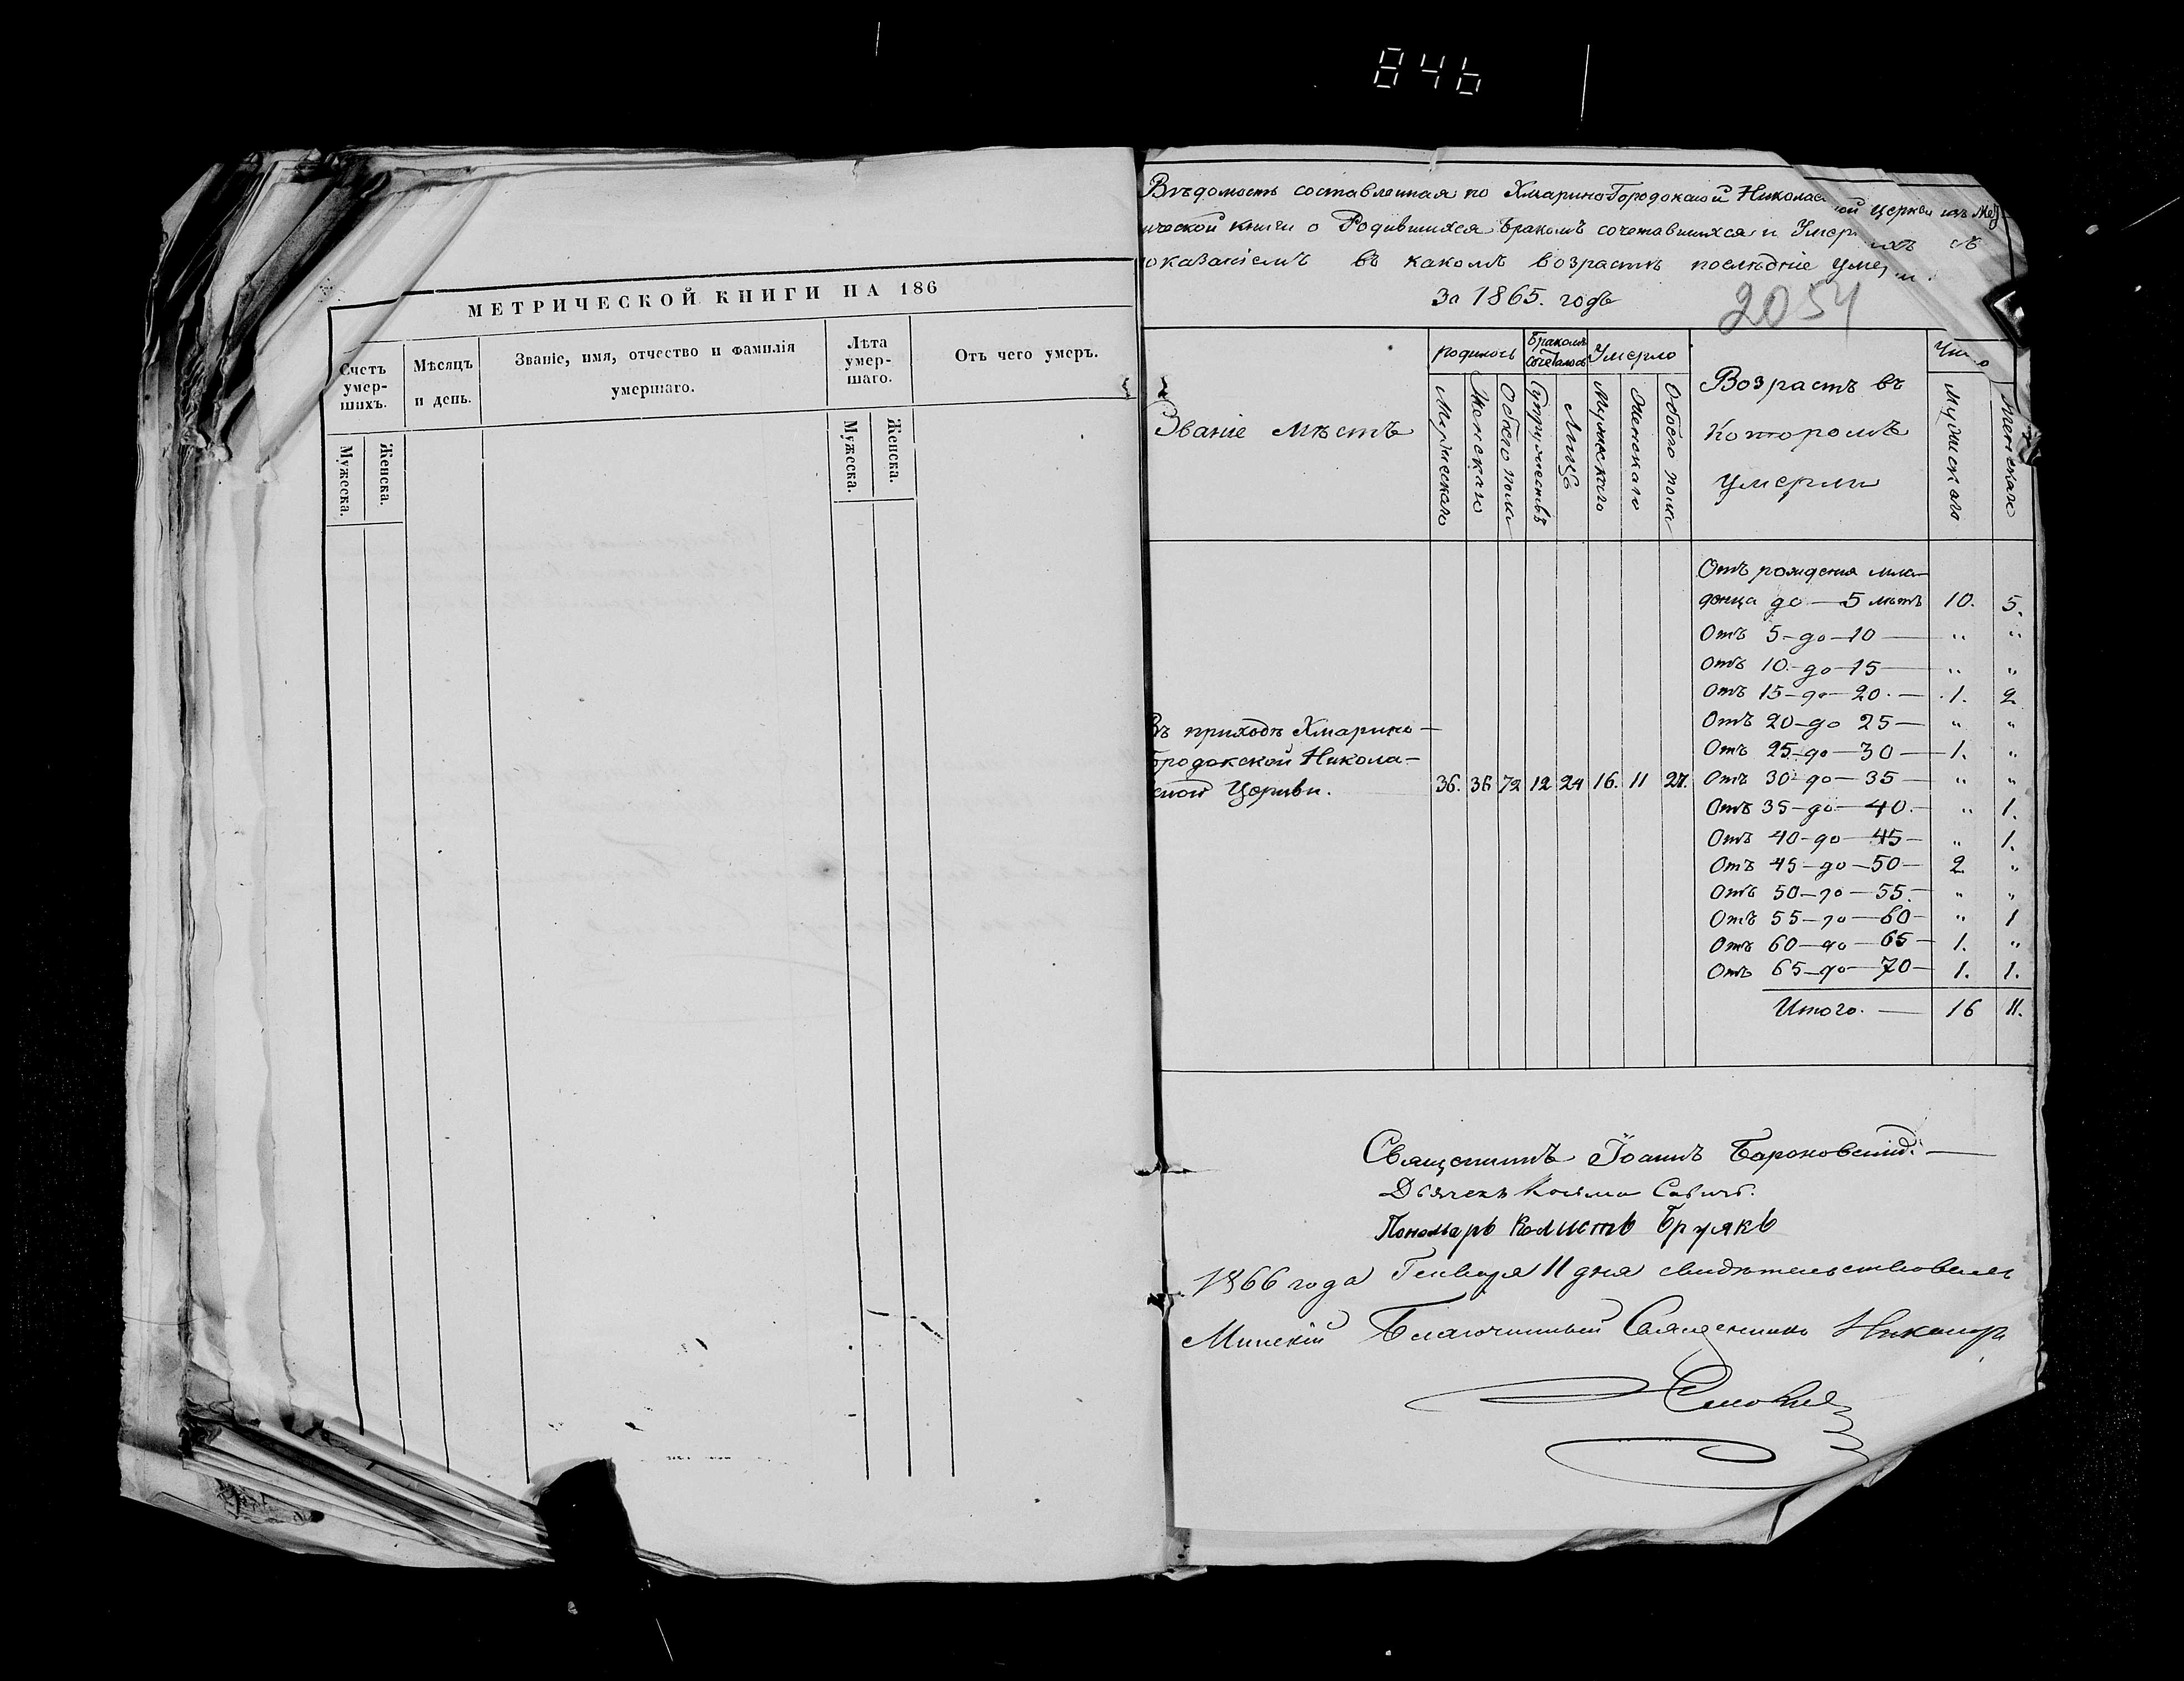 846
МЕТРИЧЕСКОЙ КНИГИ НА 186
Счетъ умер-шихъ.
Мужеска.
Женска.
Мѣсяцъ и день.
Званіе, имя, отчество и фамилія
умершаго.
Лѣта умер-шаго.
Мужеска.
Женска.
Отъ чего умеръ.
Вѣдомость составленная по Хмарино Городокской
ической книги о Родившихся Бракомъ сочетавшихся и
оказаніемъ въ какомъ возрастѣ послѣдніе
За 1865. годъ
2054
Званіе мѣстъ
родилось
Мужескаго
Женскаго
Обоего пола
Бракомъ сочеталось
Супружествъ
Лицъ
Умерло
Мужескаго
Женскаго
Обоего пола
Возрастъ въ
Которомъ
умерли
Мужскаго
Женскаго
Отъ рожденія мла-
денца до — 5 лѣтъ 10. 5.
Отъ 5 - до - 10 — " "
Отъ 10 - до - 15 — " "
Отъ 15 - до - 20 — 1. 2
Отъ 20 - до 25 — " "
Отъ 25 - до - 30 — 1. "
Отъ 30 - до - 35 — " "
Отъ 35 - до - 40 — " 1.
Отъ 40 - до - 45 — " 1.
Отъ 45 - до - 50 — 2 "
Отъ 50 - до - 55 — " "
Отъ 55 - до - 60 — " 1
Отъ 60 - до - 65 — 1. "
Отъ 65 - до - 70 — 1. 1.
Итого. — 16 11.
Въ приходѣ Хмарино-
Городокской Никола-
Церкви. 36. 36 72 12 24 16. 11 27.
Священникъ Іоаннъ
Дьячекъ Косьма Савичъ.
Пономарь Калистъ Брукъ
1866 года Генваря 11 дня свидѣтельствовалъ
Минскій Благочинный Священникъ Никаноръ